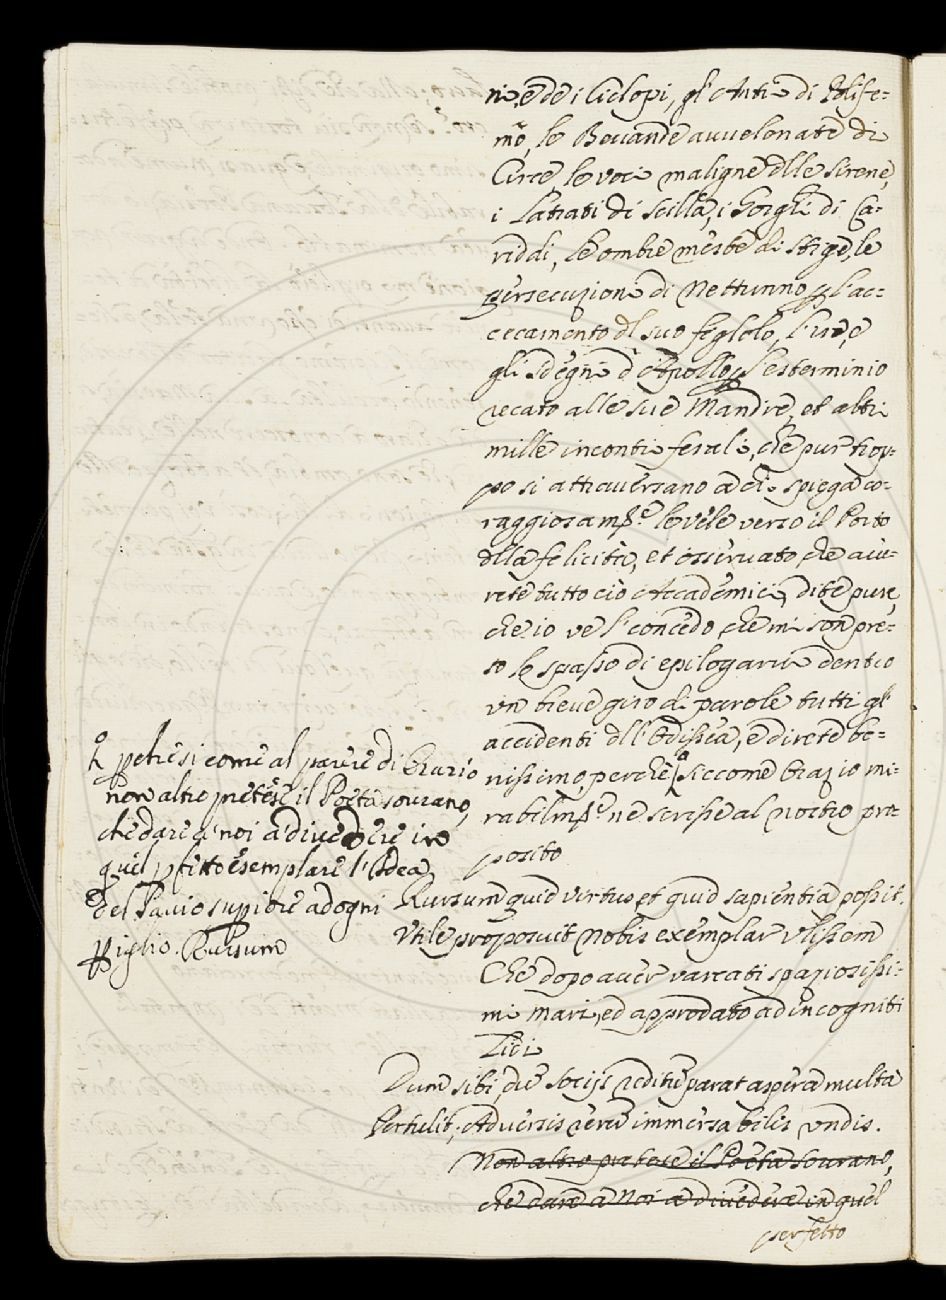 ni, e de i Ciclopi, gl'Antri di Polife-
mo, le Bevande avvelenate di
Circe, le voci maligne dlle Sirene,
i Latrati di Scilla, i Gorghi di Ca-
riddi, le ombre meste di Stige, le
persecuzioni di Nettunno pl'ac-
cecamento dl suo figlolo, l'ire, e
gli sdegni d'Apollo pl'esterminio
recato alle sue Mandre, et altri
mille incontri ferali, che pur trop-
po si attraversano a chi spiega co-
raggiosamte le vele verso il Porto
dlla felicità, et osservato che avē-
rete tutto ciò Accademici, dite pure,
che io ve l'concedo, che mi son pre-
so lo spasso di epilogarvi dentro
un breve giro di parole tutti gl'
accidenti dll'Odissea, e direte be-
nissimo, perchè siccome Orazio mi-
rabilmte ne scrisse al nostro pro-
posito
Rursum quid virtus, et quid sapientia possit.
Utile proposuit nobis exemplar Ulissem
Che dopo aver varcati spaziosissi-
mi mari, ed approdato ad incogniti
Lidi
Dum sibi, dū socijs reditū parat aspera multa
Pertulit, Adversis rerū immersabilis undis.
Non altro pretese il Poeta sovrano,
che dare a noi a divedere in quel
perfetto
pchè sì come al parere di Orazio
non altro pretese il Poeta sovrano,
che dare a noi a divedere in
quel pfetto esemplare l'Idea
del Savio suppiore ad ogni
Piglio. Rursum